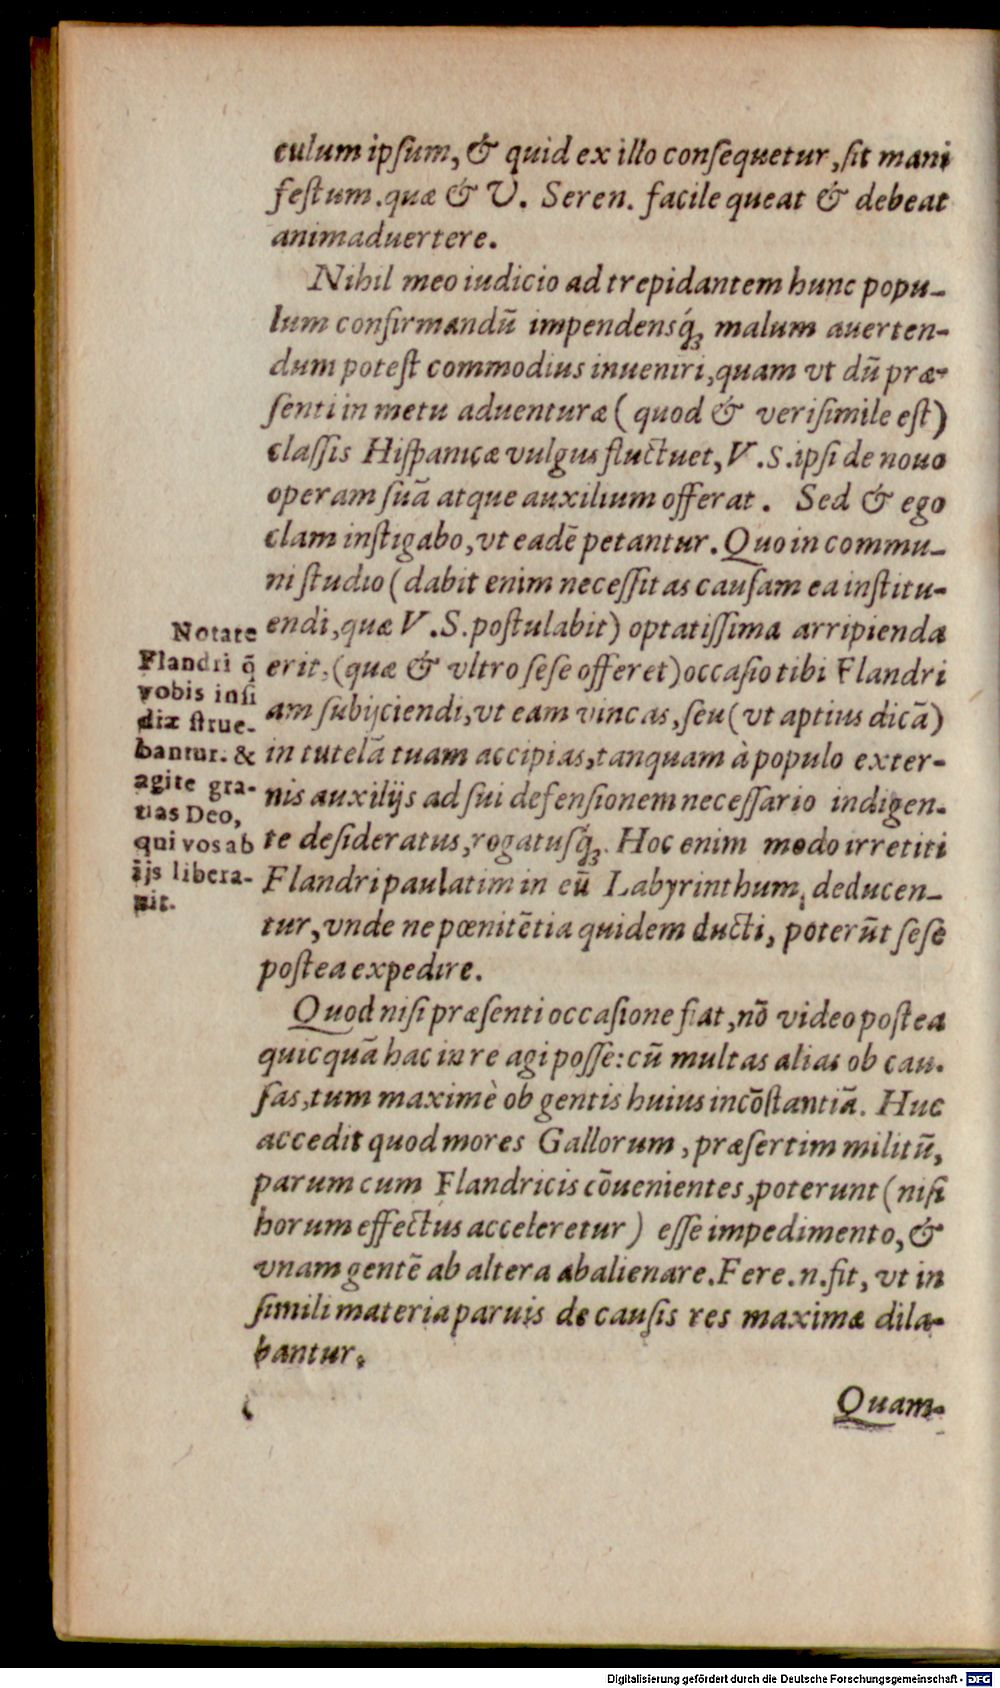 culum ipsum, & quid ex illo consequetur, sit mani
festum. quæ & V. Seren. facile queat & debeat
animaduertere.
Nihil meo iudicio ad trepidantem hunc popu-
lum confirmandū impendensq́ꝫ malum auerten-
dum potest commodius inueniri, quam vt dū præ-
senti in metu aduenturæ ( quod & verisimile est)
classis Hispanicæ vulgus fluctuet, V.S. ipsi de nouo
operam suā atque auxilium offerat. Sed & ego
clam instigabo, vt eadē petantur. Quo in commu-
ni studio ( dabit enim necessitas causam ea institu-
endi, quæ V.S. postulabit) optatissima arripienda
erit, (quæ & vltro sese offeret) occasio tibi Flandri
am subijciendi, vt eam vincas, seu ( vt aptius dicā)
in tutelā tuam accipias, tanquam à populo exter-
nis auxilijs ad sui defensionem necessario indigen-
te desideratus, rogatusq́ꝫ. Hoc enim modo irretiti
Flandri paulatim in eū Labyrinthum, deducen-
tur, vnde ne pœnitētia quidem ducti, poterūt sese
postea expedire.
Notate
Flandri q̄
vobis insi
diæ strue-
bantur. &
agite gra-
tias Deo,
qui vos ab
ijs libera-
uit.
Quod nisi præsenti occasione fiat, nō video postea
quicquā hac in re agi posse: cū multas alias ob cau-
sas, tum maximè ob gentis huius incōstantiā. Huc
accedit quod mores Gallorum, præsertim militū,
parum cum Flandricis cōuenientes, poterunt ( nisi
horum effectus acceleretur ) esse impedimento, &
vnam gentē ab altera abalienare. Fere.n. fit, vt in
simili materia paruis de causis res maximæ dila-
bantur.
Quam-
Digitalisierung gefördert durch die Deutsche Forschungsgemeinschaft - DFG